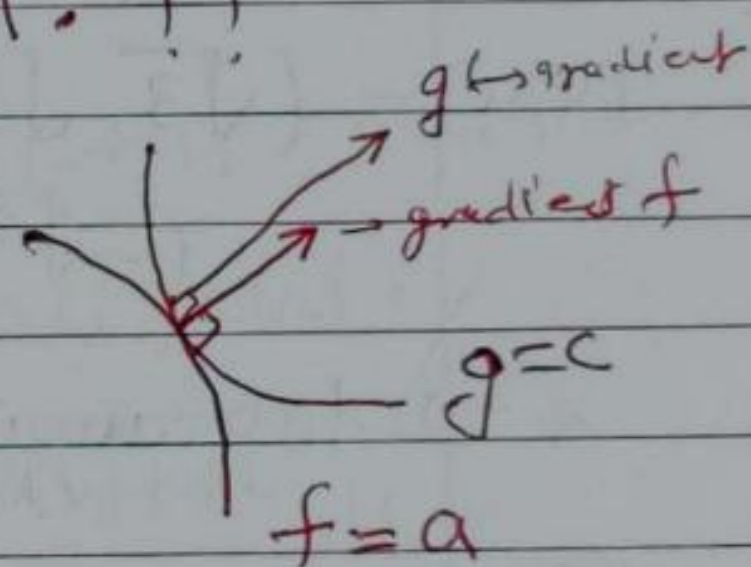 g ↔ gradient
→ gradient f
g = c
f = a